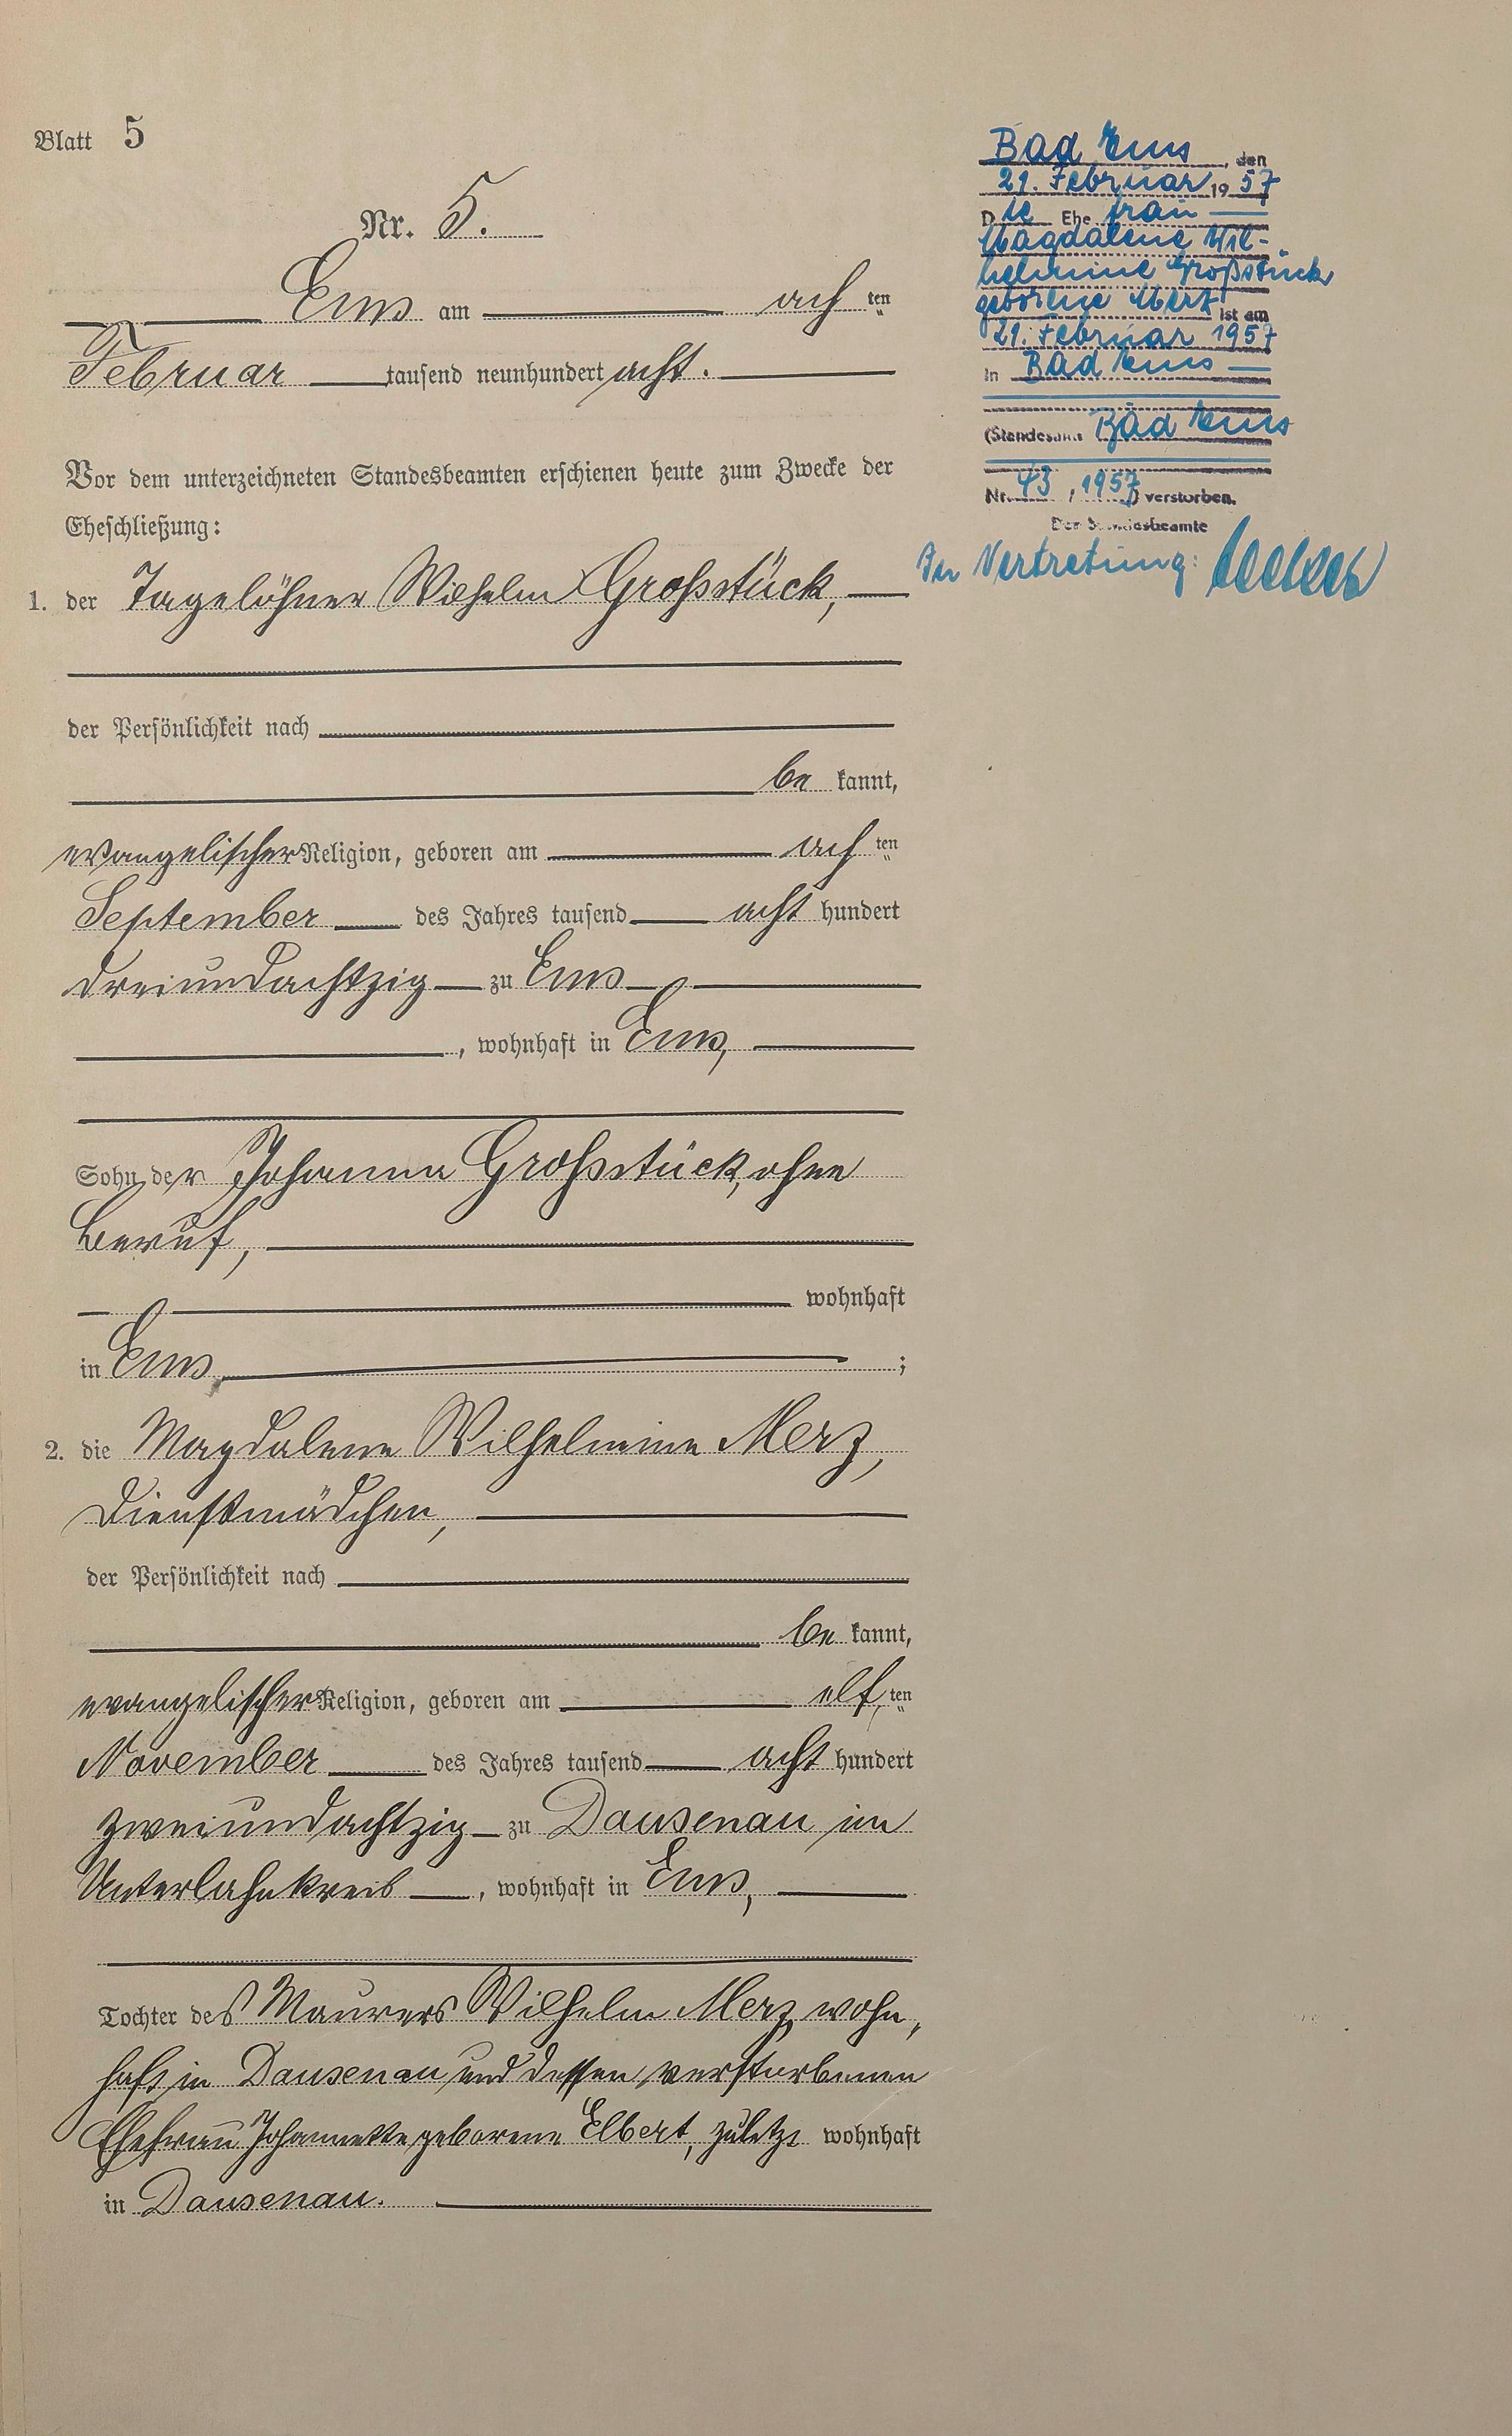 Blatt 5
Nr. 5.
Ems am ach ten
Februar tausend neunhundert acht.
Vor dem unterzeichneten Standesbeamten erschienen heute zum Zwecke der
Eheschließung:
1. der Tagelöhner Wilhelm Großstück,
der Persönlichkeit nach
be kannt,
evangelischer Religion, geboren am ach ten
September des Jahres tausend acht hundert
dreiundachtzig zu Ems
, wohnhaft in Ems,
Sohn der Johanna Großstück, ohne
Beruf,
wohnhaft
in Ems ;
2. die Magdalene Wilhelmine Merz,
Dienstmädchen,
der Persönlichkeit nach
be kannt,
evangelischer Religion, geboren am elf ten
November des Jahres tausend acht hundert
zweiundachtzig zu Dausenau im
Unterlahnkreis , wohnhaft in Ems,
Tochter des Maurers Wilhelm Merz, wohn-
haft in Dausenau und dessen verstorbenen
Ehefrau Johannette geborene Elbert, zuletzt wohnhaft
in Dausenau.
Bad Ems , den
21. Februar 19 57
D ie Ehe frau
Magdalene Wil-
helmine Großstück
geborene Merz ist am
21. Februar 1957
in Bad Ems
(Standesamt Bad Ems
Nr. 43 / 1957) verstorben.
Der Standesbeamte
In Vertretung: